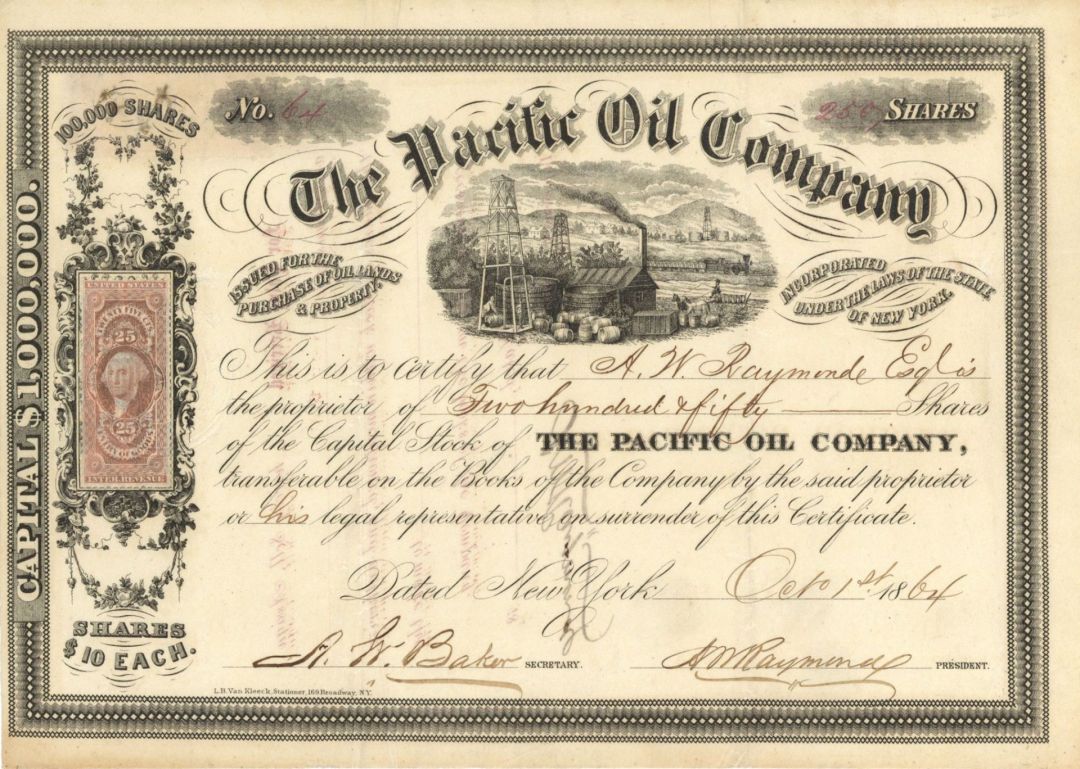 100,000 SHARES
No. 64
250 SHARES
The Pacific Oil Company
ISSUED FOR THE
PURCHASE OF OIL LANDS
& PROPERTY.
INCORPORATED
UNDER THE LAWS OF THE STATE
OF NEW YORK.
CAPITAL $1,000,000.
UNITED STATES
25
25
INTER. REVENUE
This is to certify that A. W. Raymonde Esq is
the proprietor of Two hundred & fifty Shares
of the Capital Stock of THE PACIFIC OIL COMPANY,
transferable on the Books of the Company by the said proprietor
or his legal representative on surrender of this Certificate.
Dated New York Oct 1st. 1864
SHARES
$10 EACH.
A. W. Baker SECRETARY.
A W Raymonde PRESIDENT.
L.B. Van Kleeck, Stationer 169 Broadway, N.Y.